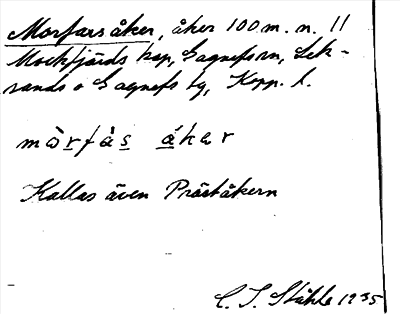 Morfarsåker, åker 100 m. n. ll
Mockfjärds kap, Gagnefs sn, Lek-
sands o Gagnefs tg, Kopp. l.
mòrfàs ákər
Kallas även Präståkern
C. I. Ståhle 1935